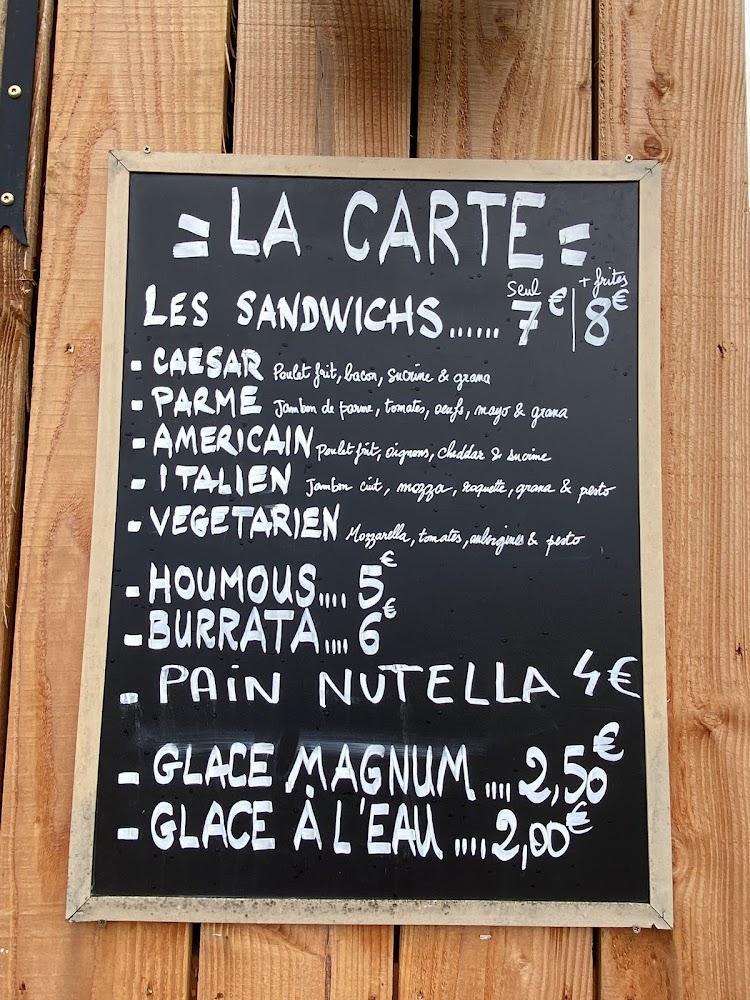 = LA CARTE =
seul + frites
LES SANDWICHS...... 7€ | 8€
- CAESAR Poulet frit, bacon, sucrine & grana
- PARME Jambon de parme, tomates, oeufs, mayo & grana
- AMERICAIN Poulet frit, oignons, cheddar & sucrine
- ITALIEN Jambon cuit, mozza, roquette, grana & pesto
- VEGETARIEN Mozzarella, tomates, aubergines & pesto
- HOUMOUS.... 5€
- BURRATA.... 6€
- PAIN NUTELLA 4€
- GLACE MAGNUM .... 2,50€
- GLACE À L'EAU .... 2,00€